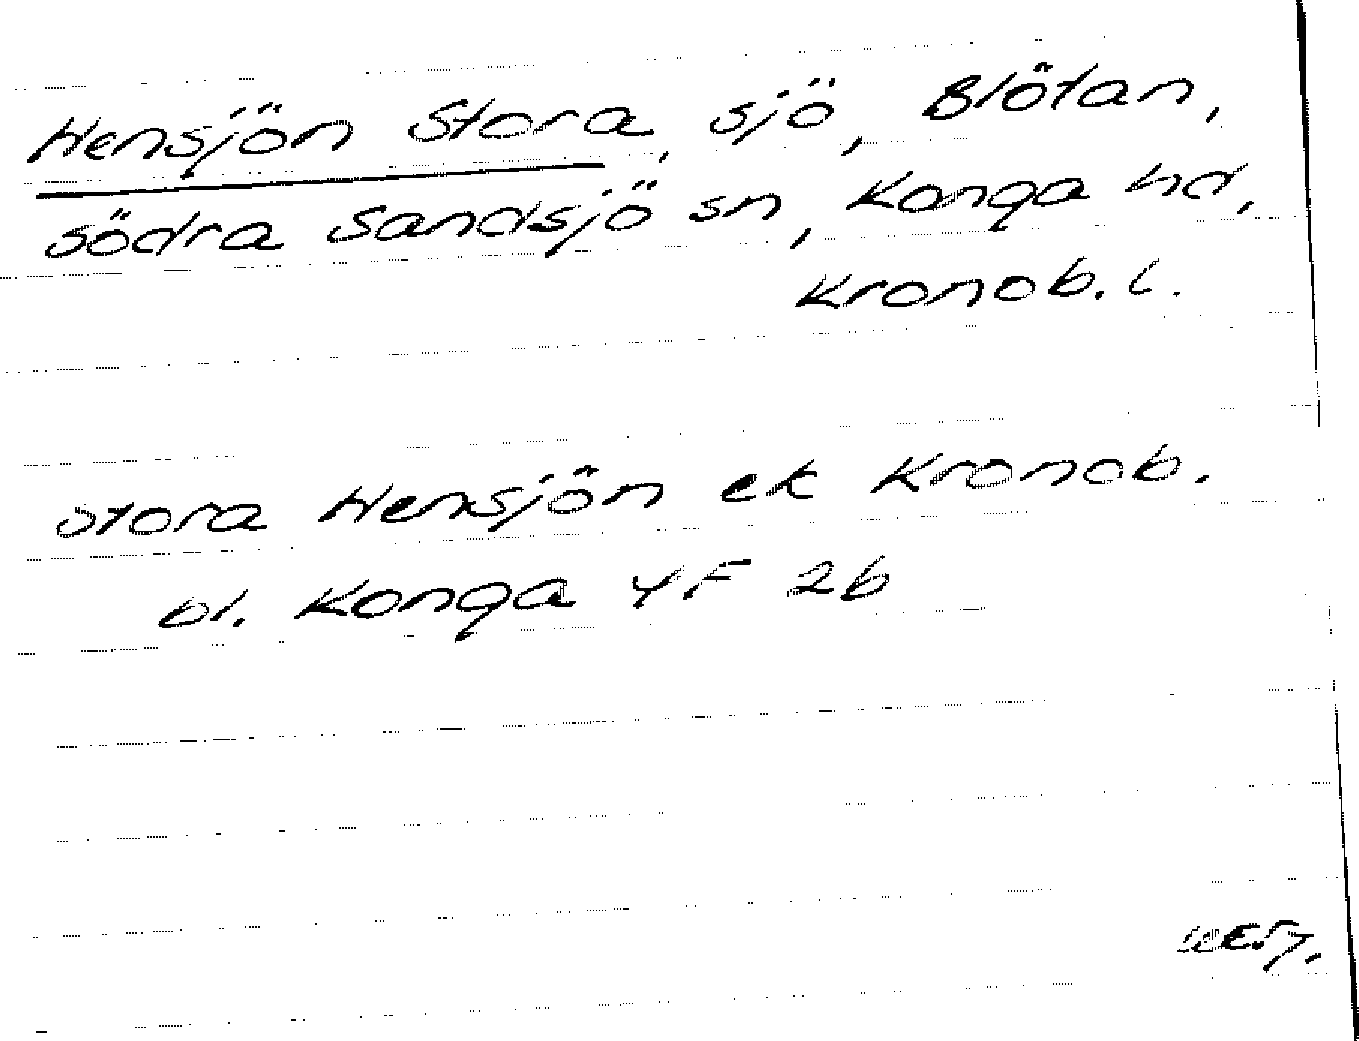 Hensjön Stora, sjö, Blötan,
södra Sandsjö sn, Konga hd,
Kronob. l.
Stora Hensjön ek Kronob.
bl. Konga 4F 2b